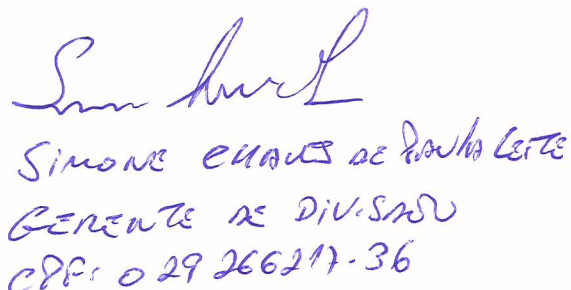 SIMONE CHAVES DE PAULA LEITE
GERENTE DE DIVISÃO
CPF: 029 266217-36